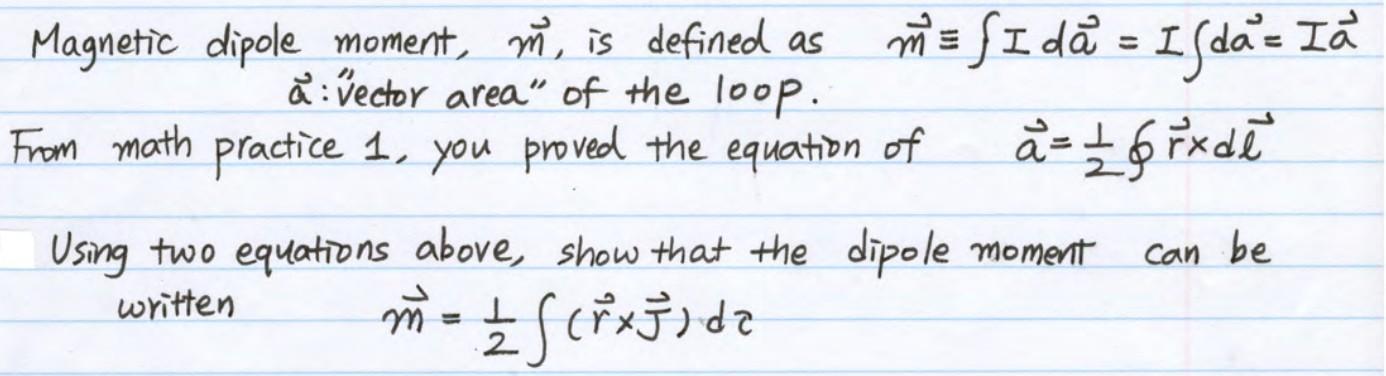 Magnetic dipole moment, m⃗, is defined as m⃗ ≡ ∫ I da⃗ = I ∫ da⃗ = I a⃗
a⃗ : "vector area" of the loop.
From math practice 1, you proved the equation of a⃗ = 1/2 ∮ r⃗ × dl⃗
Using two equations above, show that the dipole moment can be
written m⃗ = 1/2 ∫ (r⃗ × J⃗) dτ